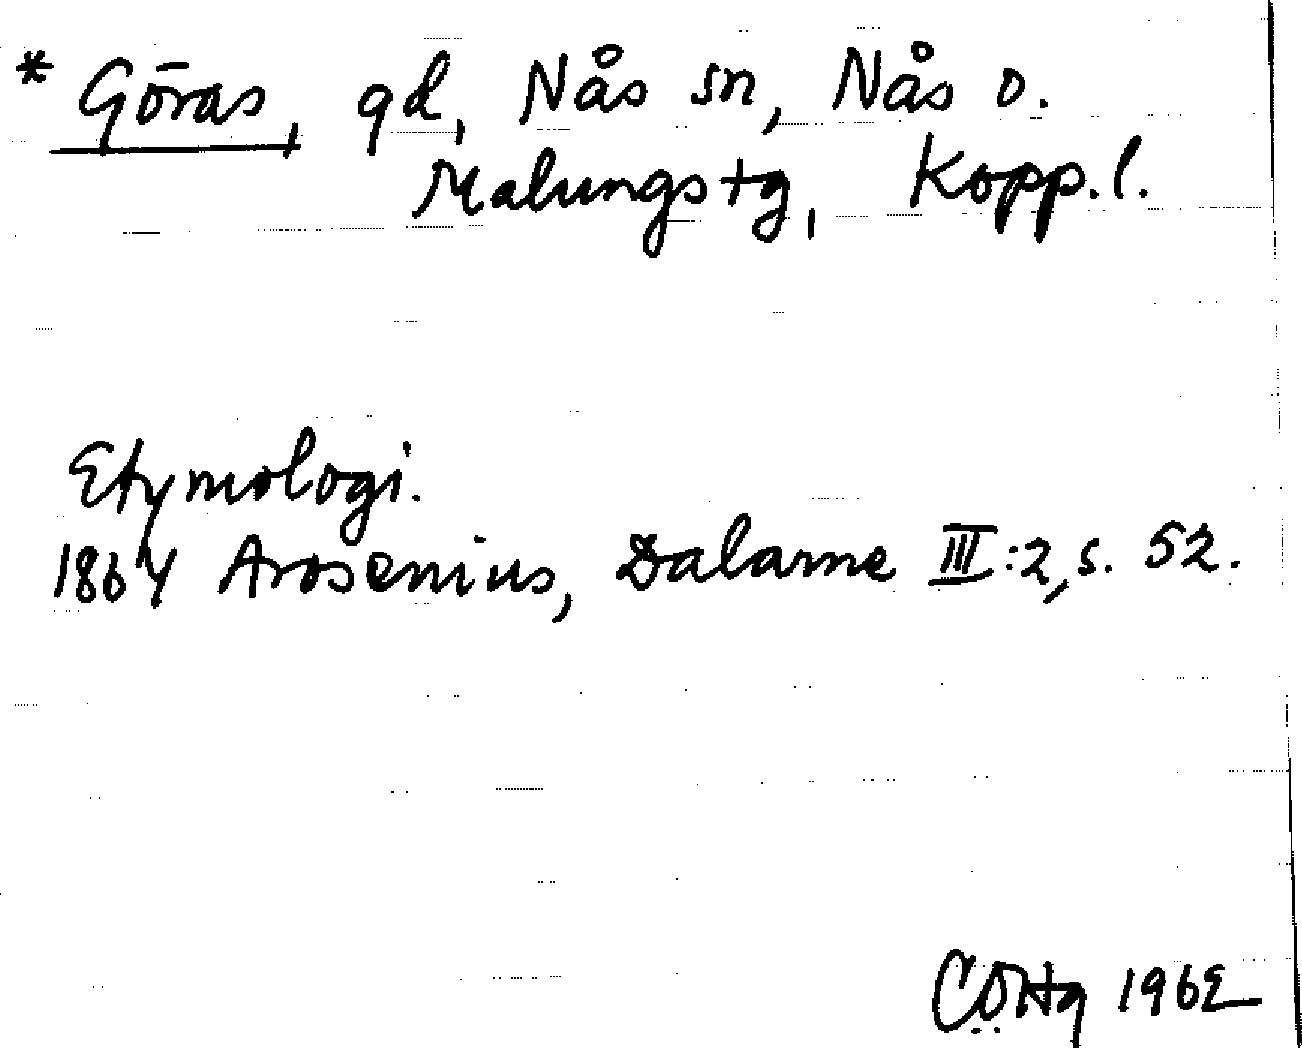 * Göras, gd, Nås sn, Nås o.
Malungs tg, Kopp. l.
Etymologi.
1864 Arosenius, Dalarne III:2, s. 52.
1962